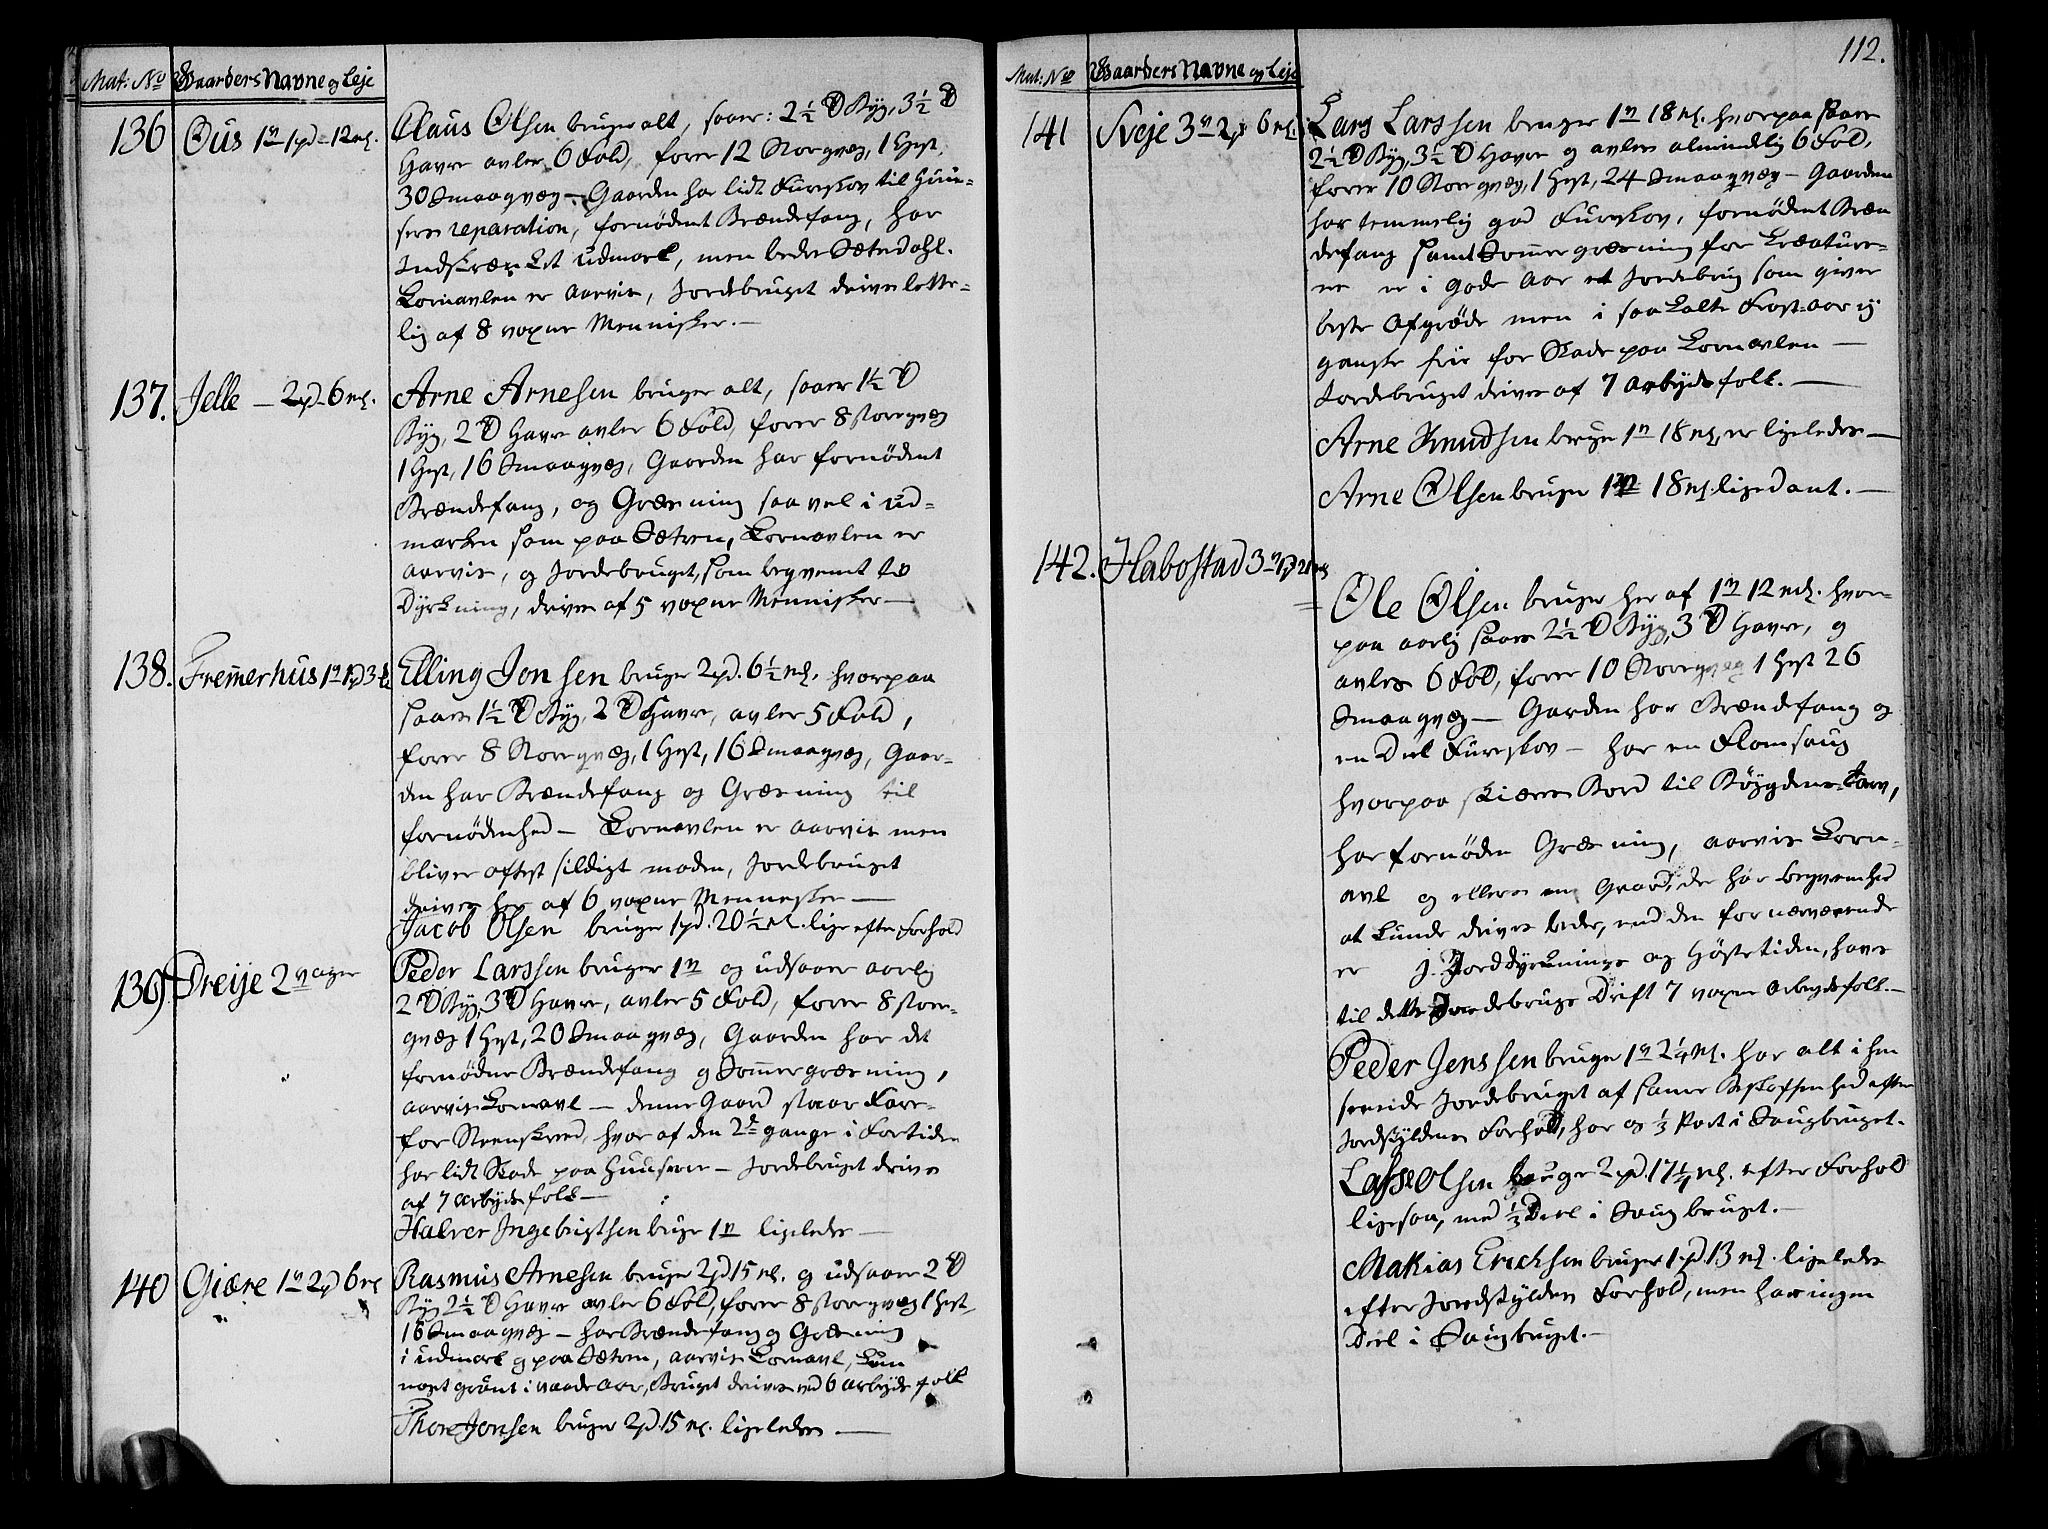 Mat: No Gaarders Navne og Leje
136 Ous 1 v 1 pd - 12 mk.
Claus Olsen bruger alt, saaer: 2½ Td Byg, 3½ Td
Havre avler 6 Fold, foror 12 Storqvæg, 1 Hest,
30 Smaaqvæg - Gaarden har lidt Fureskov til Huu-
sers reparation, fornødent Brændefang, har
Indskrænket udmark, men bedre Sæterdahl.
Kornavlen er aarvis, Jordebruget drives lette-
lig af 8 voxne Mennisker. -
137. Jelle - 2 pd - 6 mk.
Arne Arnesen bruger alt, saaer 1½ Td
Byg, 2 Td Havre avler 6 Fold, forer 8 Storeqvæg
1 Hest, 16 Smaaqvæg, Gaarden har fornødent
Brændefang, og Græsning saavel i ud-
marken som paa Sætren, Kornavlen er
aarvis, og Jordebruget, som beqvemt til
Dyrkning, drives af 5 voxne Mennisker -
138. Fremmerhus 1 v 1 pd 3
Elling Jonsen bruger 2 pd. 6½ mk. hvorpaa
saaes 1½ Td Byg, 2 Td Havre, avler 5 Fold,
forer 8 Storeqvæg, 1 Hest, 16 Smaaqvæg, Gaar-
den har Brændefang og Græsning til
fornødenhed - Kornavlen er aarvis men
bliver oftest sildigt moden, Jordebruget
drives her af 6 voxne Mennesker -
Jacob Olsen bruger 1 pd. 20½ mk. lige efter Forhold
139 Dreije 2 vager
Peder Larssen bruger 1 v og udsaaer aarlig
2 Td Byg, 3 Td Havre, avler 5 Fold, forer 8 Stor-
qvæg 1 Hest, 20 Smaaqvæg, Gaarden har det
fornødne Brændefang og Sommergræsning,
aarvis Kornavl - denne Gaard staar Fare-
for Steenskred, hvor af den 2de gange i Fortiden
har lidt Skade paa Huusene - Jordebruget drives
af 7 arbeydsfolk -
Halver Ingebrigtsen bruger 1 v ligeledes -
140 Giære 1 v 2 pd 6 mk
Rasmus Arnesen bruger 2 pd 15 mk. og udsaaer 2 Td
Byg 2½ Td Havre avler 6 Fold, forer 8 Storeqvæg 1 Hest-
16 Smaaqvæg - har Brændefang og Græsning
i udmark og paa Sætren, aarvis Kornavl, kun
noget grønt i vaade aar, Bruget drives ved 6 arbeyds folk
Thore Jonsen bruger 2 pd. 15 mk. ligeledes -
112.
Mat: No Gaarders Navne og Leje
141 Sveje 3 v 2 pd 6 mk.
Lars Larssen bruger 1 v 18 mk. hvorpaa saaes
2½ Td Byg, 3½ Td Havre og avles almindelig 6 Fold,
forer 10 Storeqvæg, 1 Hest, 24 Smaaqvæg - Gaarden
har temmelig god Fureskov, fornødent Bræn
defang samt Sommergræsning for Creature-
ne er i gode Aar et Jordebrug som giver
beste Afgrøde men i saa kalte Frost-aar ej
ganske frie for Skade paa Kornavlen -
Jordebruget drives af 7 arbeydsfolk. -
Arne Knudsen bruger 1 v 18 mk, er ligeledes -
Arne Olsen bruger 1 v 18 mk. ligedant. -
142. Habostad 3 v 1 pd 21 mk
Ole Olsen bruger her af 1 v 12 mk. hvor-
paa aarlig saaes 2½ Td Byg, 3 Td Havre, og
avles 6 Fold, forer 10 Storeqvæg 1 Hest 26
Smaaqvæg - Garden har Brændefang og
en Deel Fureskov - har en Flomsaug
hvorpaa skiæres Bord til Bøygdens Tarv,
har fornøden Græsning, aarvis Korn-
avl og ellers en Gaard, der har beqvemhed
at kunde drives bedre, end den for nærværende
er J. Jorddyrknings og Høstetiden, haves
til dette Jordebrugs Drift 7 voxne arbeydsfolk. -
Peder Jenssen bruger 1 v 2¼ mk. har alt i hen
seende Jordebruget af samme Beskaffenhed efter
Jordskyldens Forhold, har og ⅓ Part i Saugbruget.
Lasse Olsen bruger 2 pd. 17¼ mk. efter Forhold
ligesaa, med ⅓ Deel i Saugbruget. -
Mathias Erichsen bruger 1 pd. 13 mk. ligeledes
efter Jordskylden Forhold, men har ingen
Deel i Saugbruget. -